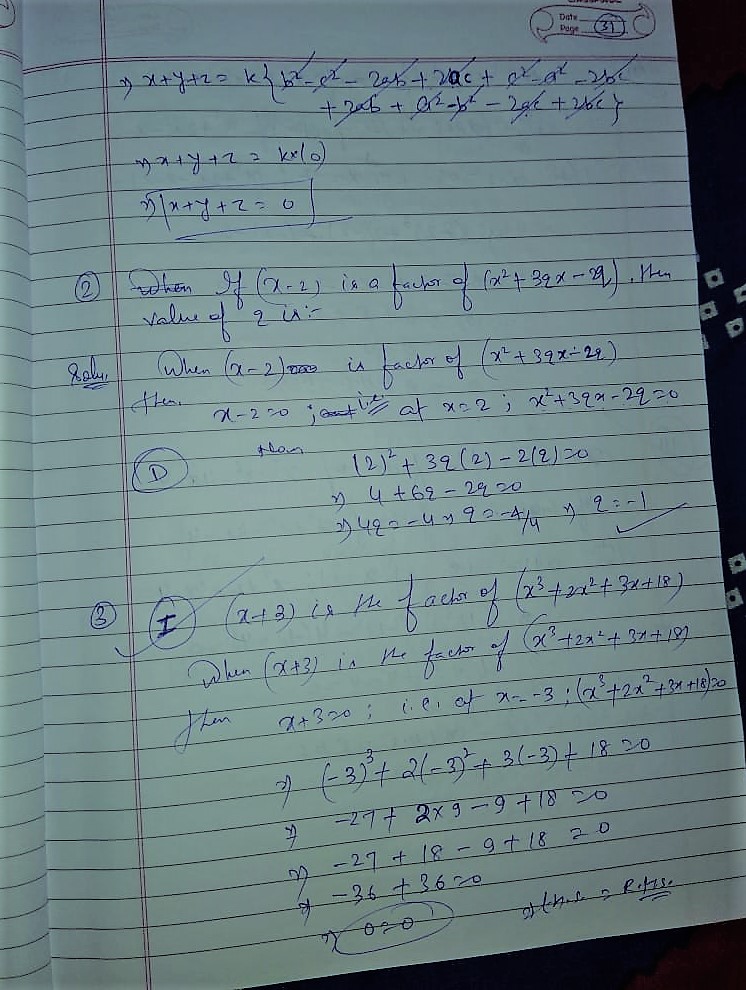 Date
Page 31
⇒ x+y+z = k{b²-c² - 2ab + 2ac + c²-a² - 2bc
+ 2ab + a²-b² - 2ac + 2bc}
⇒ x+y+z = k×(0)
⇒ x+y+z = 0
② When If (x-2) is a factor of (x²+3qx-2q), then
value of q is:-
Solu. When (x-2) is factor of (x²+3qx-2q)
then. x-2=0 ; i.e. at x=2 ; x²+3qx-2q=0
then
D (2)²+3q(2)-2(q)=0
⇒ 4+6q-2q=0
⇒ 4q=-4 ⇒ q=-4/4 ⇒ q=-1
③ I (x+3) is the factor of (x³+2x²+3x+18)
When (x+3) is the factor of (x³+2x²+3x+18)
then x+3=0 ; i.e. at x=-3 ; (x³+2x²+3x+18)=0
⇒ (-3)³+2(-3)²+3(-3)+18=0
⇒ -27+2×9-9+18=0
⇒ -27+18-9+18=0
⇒ -36+36=0
⇒ 0=0 ⇒ L.H.S. = R.H.S.